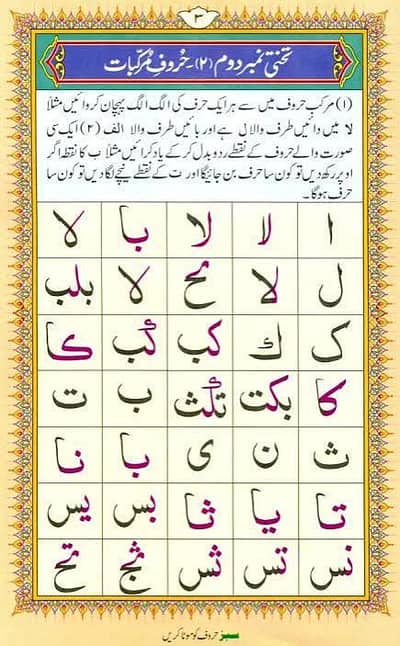 ۳
تختی نمبر دوم (۲) ۔ حُروفِ مُرکّبات
(۱) مرکب حروف میں سے ہر ایک حرف کی الگ الگ پہچان کروائیں مثلاً
لا میں دائیں طرف والا ل ہے اور بائیں طرف والا الف (۲) ایک سی
صورت والے حروف کے نقطے ردوبدل کر کے یاد کرائیں مثلاً ب کا نقطہ اگر
اوپر رکھ دیں تو کون سا حرف بن جائیگا اور ت کے نقطے نیچے لگا دیں تو کون سا
حرف ہوگا۔
ا لا لا با لا
ل لا لا بلب
ک ك کب كب كا
کا بکت ب ت
ث ن ی با نا
تا یا ثا بس یس
نس تس ثس تح
سبز حروف کو موٹا کریں